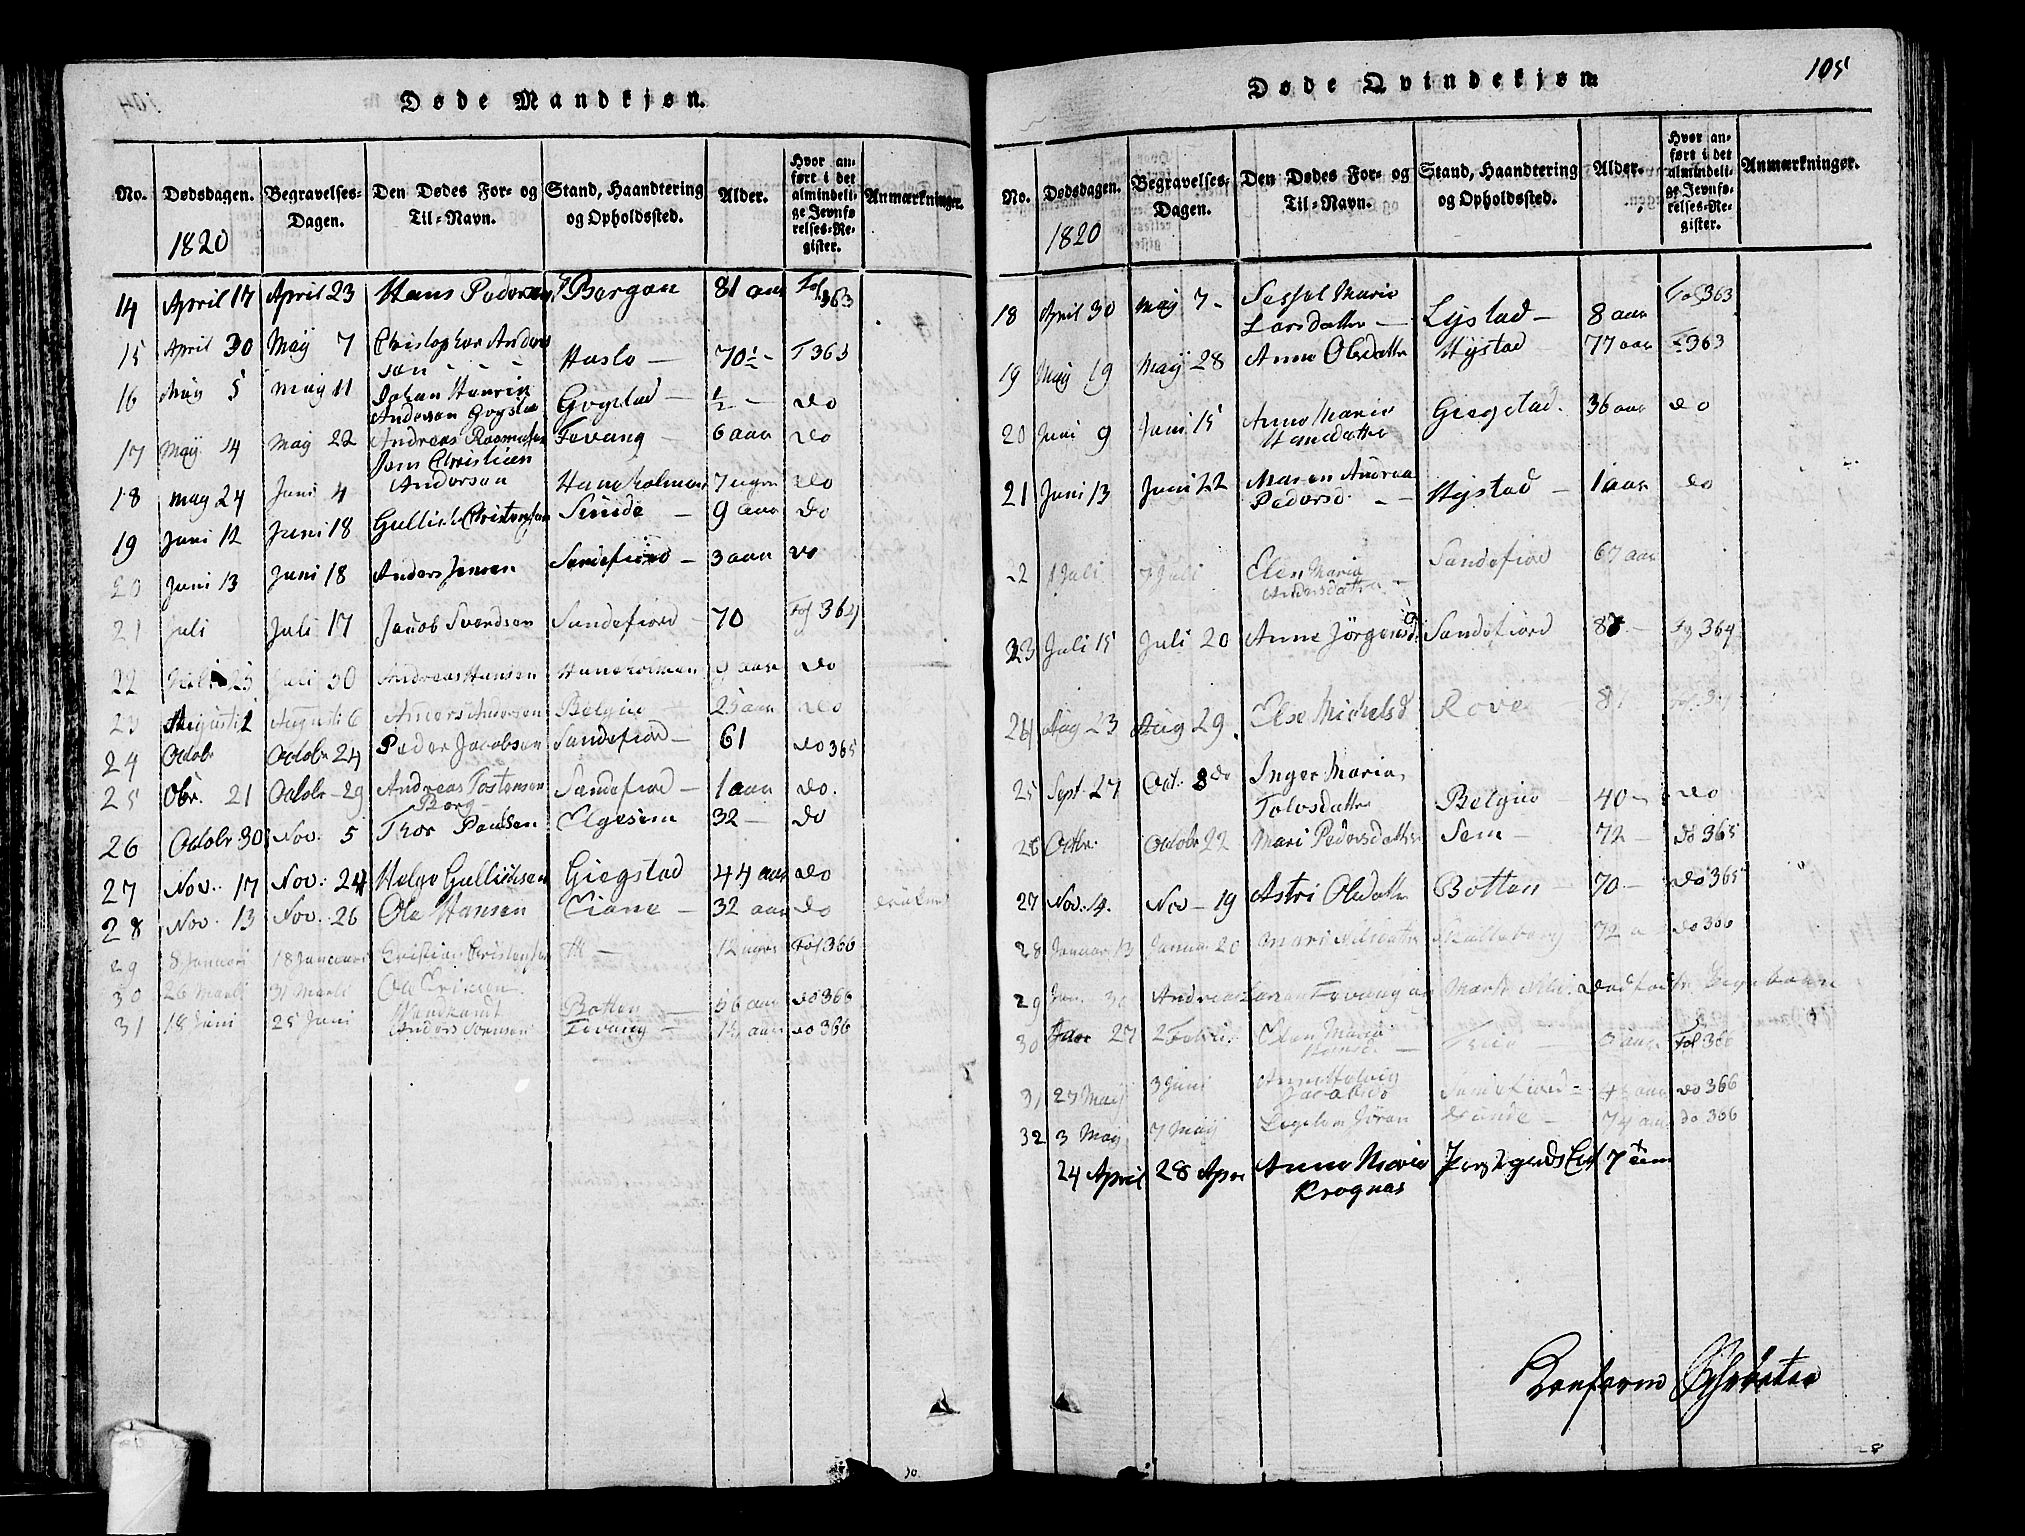 Døde Mandkjøn.
No. Dødsdagen. Begravelses-Dagen. Den Dødes For- og Til-Navn. Stand, Haandtering og Opholdssted. Alder. Hvor anført i det almindelige Jevnførelses-Register. Anmærkninger.
1820
14 April 17 April 23 Hans Pedersen Bergan 81 aar Fol 363
15 April 30 May 7 Christopher Anders
son Haslo 70 1/2 F 363
16 May 5 May 11 Johan Henrik
Anderson Gogstad Gogstad 1/2 do
17 May 14 May 22 Andreas Rasmusen Fevang 6 aar do
18 May 24 Juni 4 Jens Christian
Andersen Haneholmen 7 uger do
19 Juni 12 Juni 18 Gullich Christensen Sunde 9 aar do
20 Juni 13 Juni 18 Anders Jensen Sandefiord 3 aar do
21 Juli Juli 17 Jacob Svendsen Sandefiord 70 Fol 364
22 Juli 25 Juli 30 Andreas Hansen Haneholmen aar do
23 Augusti 2 Augusti 6 Anders Andersen Belgiu 25 aar do
24 Octobr Octobr 24 Peder Jacobsen Sandefiord 61 do 365
25 Obr. 21 Octobr 29 Andreas Tostensen
Berg Sandefiord 1 aar do.
26 Octobr 30 Nov. 5 Thor Paulsen Elgesem 32 do
27 Nov. 17 Nov. 24 Helge Gullichsen Giegstad 44 aar do
28 Nov. 13 Nov. 26 Ole Hansen 32 aar do
29 8 Januari 18 Januari Cristian Cristensen 12 uger Fol 366
30 26 Marti 31 Marti Ole Ericsen
Botten 56 aar do 366
31 18 Juni 25 Juni Anders Sørensen Fevang aar do 366
105
Døde Qvindekjøn
No. Dødsdagen. Begravelses-Dagen. Den Dødes For- og Til-Navn. Stand, Haandtering og Opholdssted. Alder. Hvor anført i det almindelige Jevnførelses-Register. Anmærkninger.
1820
18 April 30 May 7 Sessel Marie
Larsdatter Lystad 8 aar Fol 363
19 May 19 May 28 Anne Olsdatter Hystad 77 aar F 363
20 Juni 9 Juni 15 Anne Marie
Hansdatter Giegstad. 36 aar do
21 Juni 13 Juni 22 Maren Andrea
Pedersd. Hystad 1 aar do
22 1 Juli 7 Juli Elen Maria
Andersdatter Sandefiord 67 aar
23 Juli 15 Juli 20 Anne Jörgensd. Sandefiord Fg 364
24 Aug 23 Aug 29. Else Michelsd Rove
25 Sept 27 Oct. 8 do Inger Maria
Tolvsdatter Belgiu 40 do
26 Octbr. Octobr 22 Mari Pedersdatter Sem 72 do 365
27 Nov. 14. Nov 19 Astri Olsdatter Botten 70 do 365
28 Januar 13 Januar 20 Mari Nilsdatter 72 a do 366
29 Andreas Larsen Fevang og Nils. dødfødte Pigebarn
30 27 2 Febri. Elen Maria
Hansd. aar Fol 366
31 27 May 3 Juni Anne Helvig
Jacobsd Sandefiord aar do 366
32 3 May 7 May Jöran Sunde 74 aar do 366
24 April 28 Apri Anne Maria
Krognæs 7
Konform